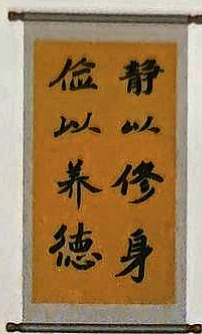 静以修身
俭以养德